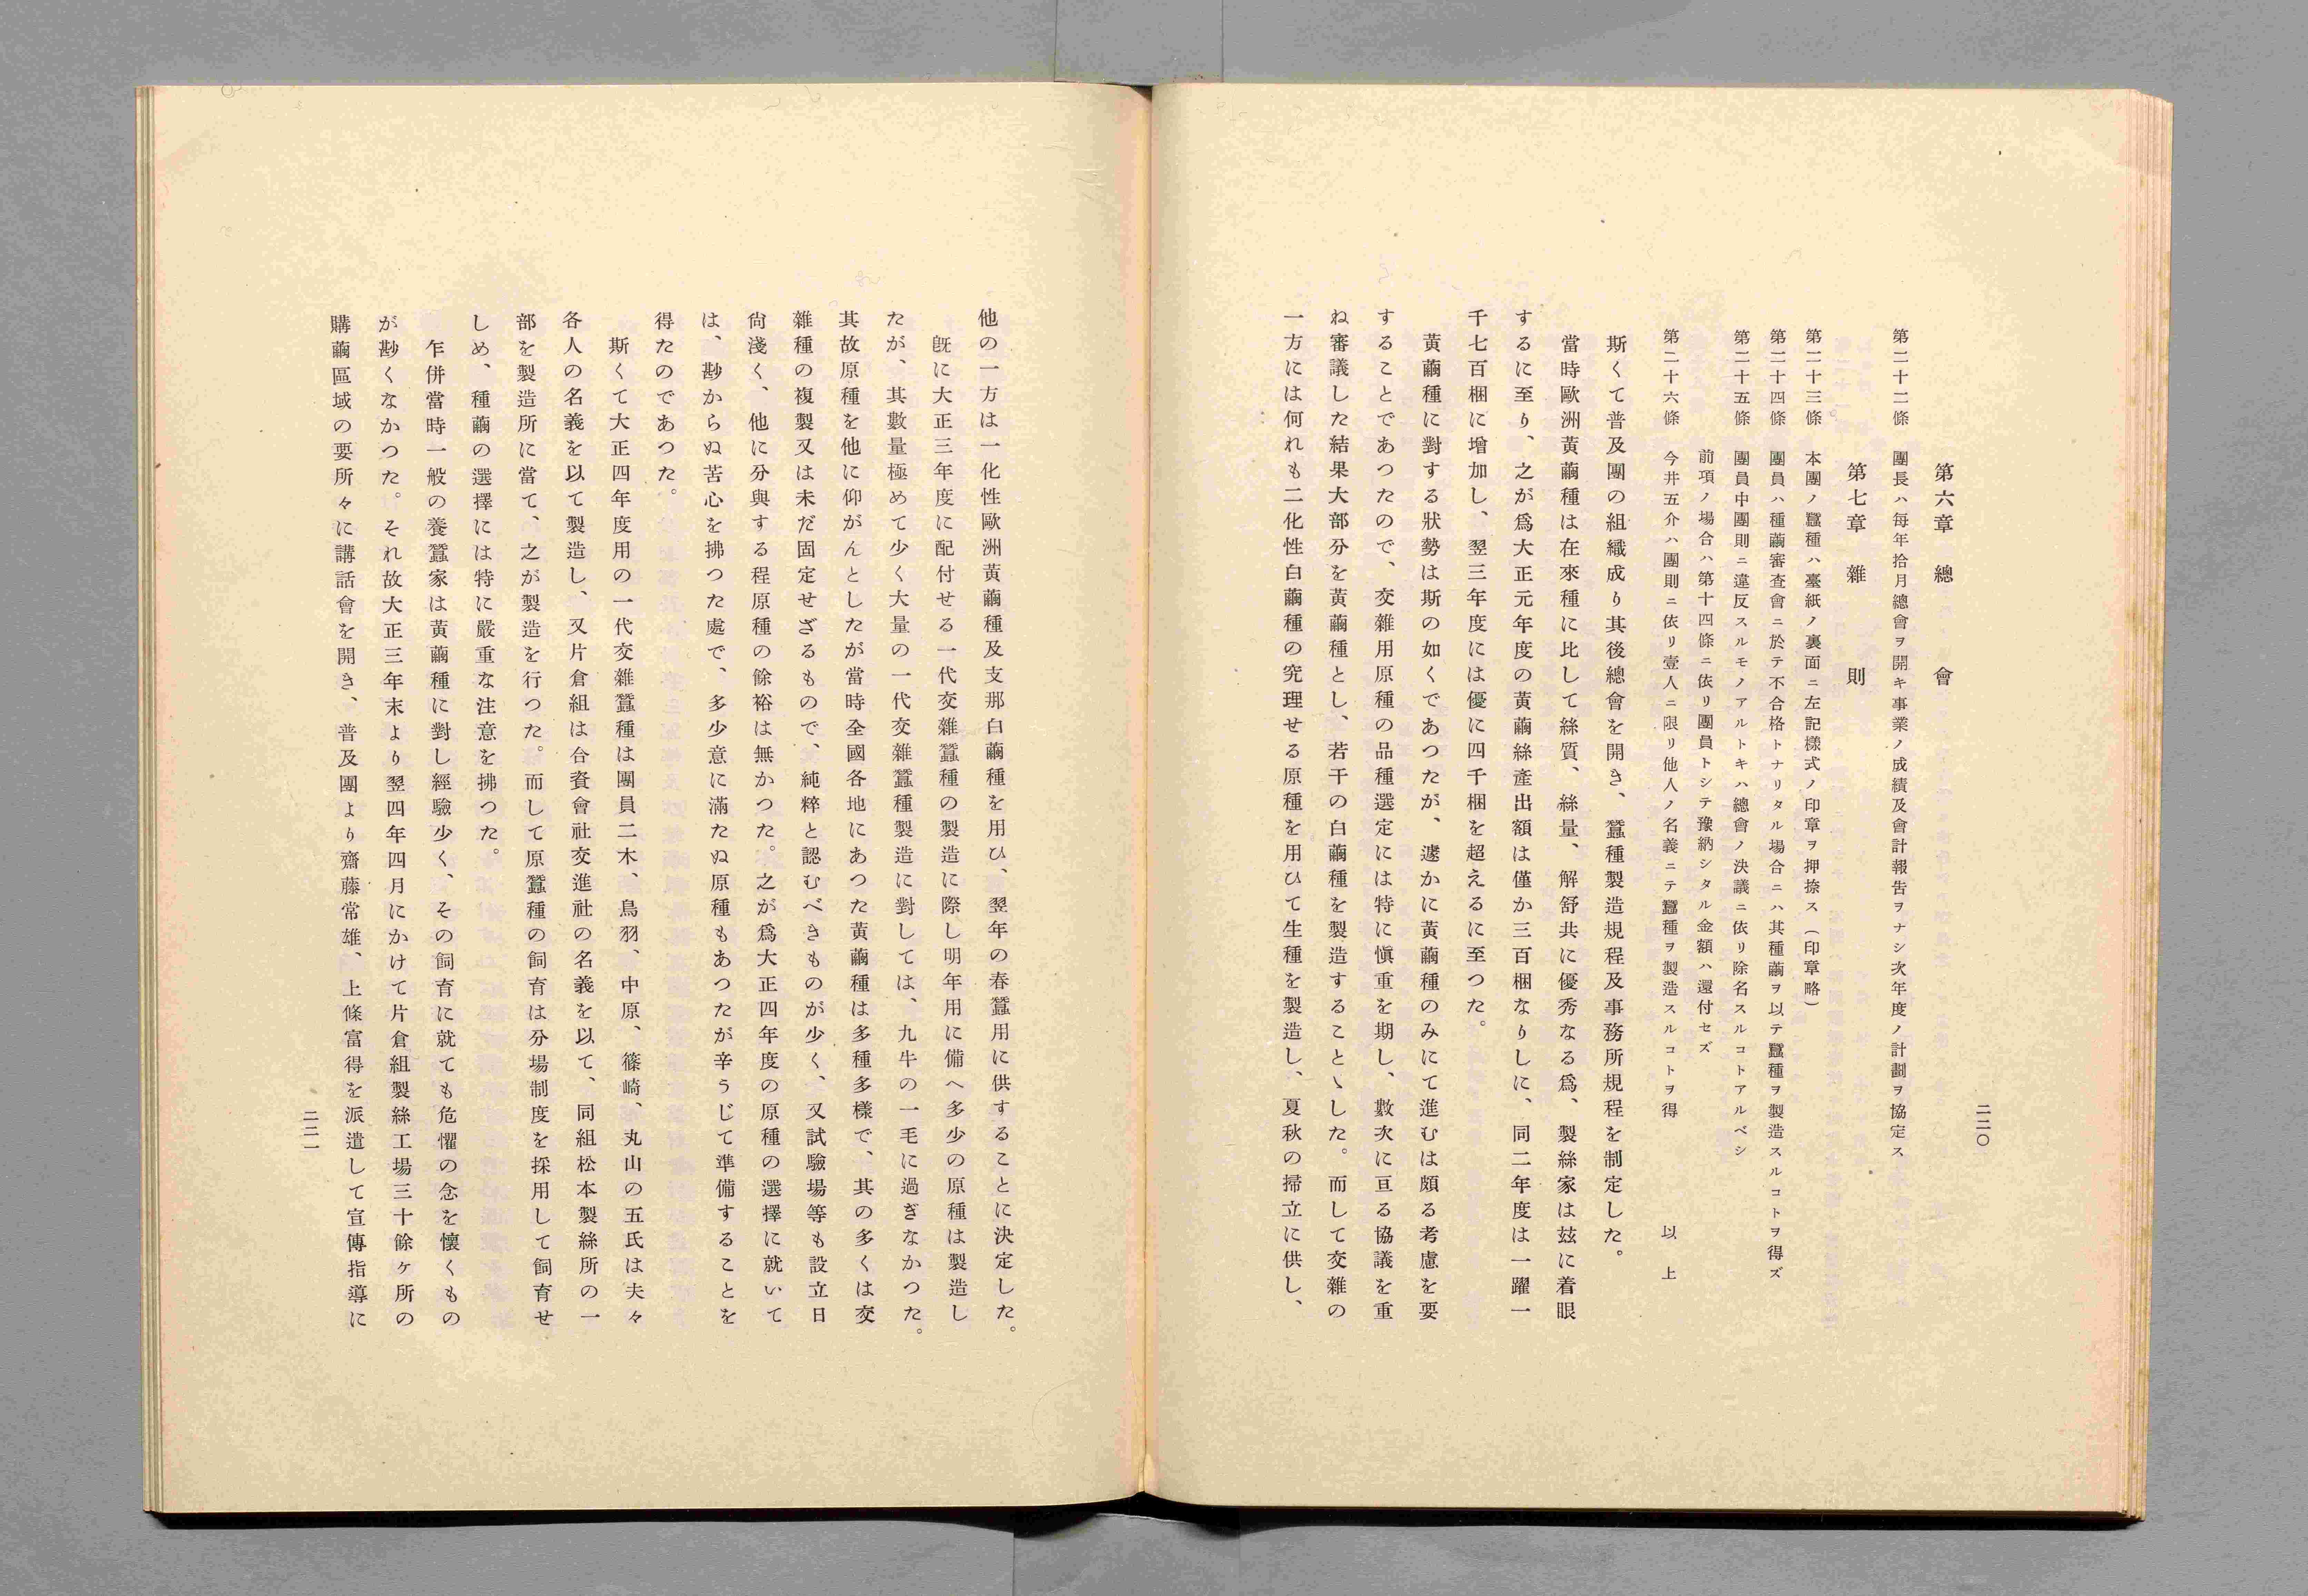 第六章　總　　　會
第二十二條　團長ハ每年拾月總會ヲ開キ事業ノ成績及會計報吿ヲナシ次年度ノ計劃ヲ協定ス
第七章　雜　　　則
第二十三條　本團ノ蠶種ハ臺紙ノ裏面ニ左記樣式ノ印章ヲ押捺ス（印章略）
第二十四條　團員ハ種繭審査會ニ於テ不合格トナリタル場合ニハ其種繭ヲ以テ蠶種ヲ製造スルコトヲ得ズ
第二十五條　團員中團則ニ違反スルモノアルトキハ總會ノ決議ニ依リ除名スルコトアルベシ
前項ノ場合ハ第十四條ニ依リ團員トシテ豫納シタル金額ハ還付セズ
第二十六條　今井五介ハ團則ニ依リ壹人ニ限リ他人ノ名義ニテ蠶種ヲ製造スルコトヲ得　　　以　上
斯くて普及團の組織成り其後總會を開き、蠶種製造規程及事務所規程を制定した。
當時歐洲黃繭種は在來種に比して絲質、絲量、解舒共に優秀なる爲、製絲家は玆に着眼
するに至り、之が爲大正元年度の黃繭絲產出額は僅か三百梱なりしに、同二年度は一躍一
千七百梱に增加し、翌三年度には優に四千梱を超えるに至つた。
黃繭種に對する狀勢は斯の如くであつたが、遽かに黃繭種のみにて進むは頗る考慮を要
することであつたので、交雜用原種の品種選定には特に愼重を期し、數次に亘る協議を重
ね審議した結果大部分を黃繭種とし、若干の白繭種を製造することゝした。而して交雜の
一方には何れも二化性白繭種の究理せる原種を用ひて生種を製造し、夏秋の掃立に供し、
二二〇
他の一方は一化性歐洲黃繭種及支那白繭種を用ひ、翌年の春蠶用に供することに決定した。
旣に大正三年度に配付せる一代交雜蠶種の製造に際し明年用に備へ多少の原種は製造し
たが、其數量極めて少く大量の一代交雜蠶種製造に對しては、九牛の一毛に過ぎなかつた。
其故原種を他に仰がんとしたが當時全國各地にあつた黃繭種は多種多樣で、其の多くは交
雜種の複製又は未だ固定せざるもので、純粹と認むべきものが少く、又試驗場等も設立日
尙淺く、他に分與する程原種の餘裕は無かつた。之が爲大正四年度の原種の選擇に就いて
は、尠からぬ苦心を拂つた處で、多少意に滿たぬ原種もあつたが辛うじて準備することを
得たのであつた。
斯くて大正四年度用の一代交雜蠶種は團員二木、鳥羽、中原、篠崎、丸山の五氏は夫々
各人の名義を以て製造し、又片倉組は合資會社交進社の名義を以て、同組松本製絲所の一
部を製造所に當て、之が製造を行つた。而して原蠶種の飼育は分場制度を採用して飼育せ
しめ、種繭の選擇には特に嚴重な注意を拂つた。
乍併當時一般の養蠶家は黃繭種に對し經驗少く、その飼育に就ても危懼の念を懷くもの
が尠くなかつた。それ故大正三年末より翌四年四月にかけて片倉組製絲工場三十餘ヶ所の
購繭區域の要所々に講話會を開き、普及團より齋藤常雄、上條富得を派遣して宣傳指導に
二二一